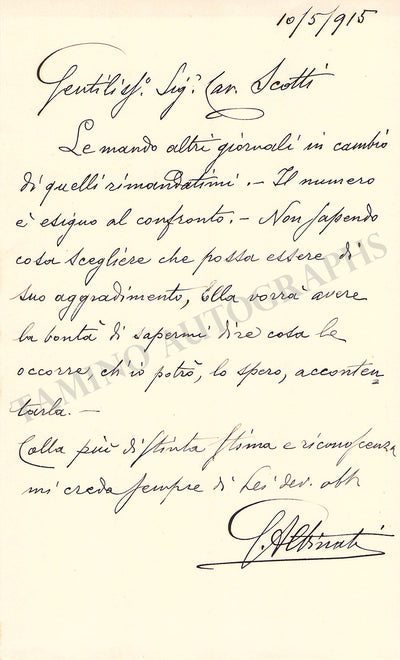 10/5/915
Gentiliss.º Sig.r Cav. Scotti
Le mando altri giornali in cambio
di quelli rimandatimi. — Il numero
è esiguo al confronto. — Non sapendo
cosa scegliere che possa essere di
suo aggradimento, Ella vorrà avere
la bontà di sapermi dire cosa le
occorre, ch'io potrò, lo spero, acconten=
tarla. —
Colla più distinta stima e riconoscenza
mi creda sempre di Lei dev. obb
G. Albinati
TAMINO AUTOGRAPHS